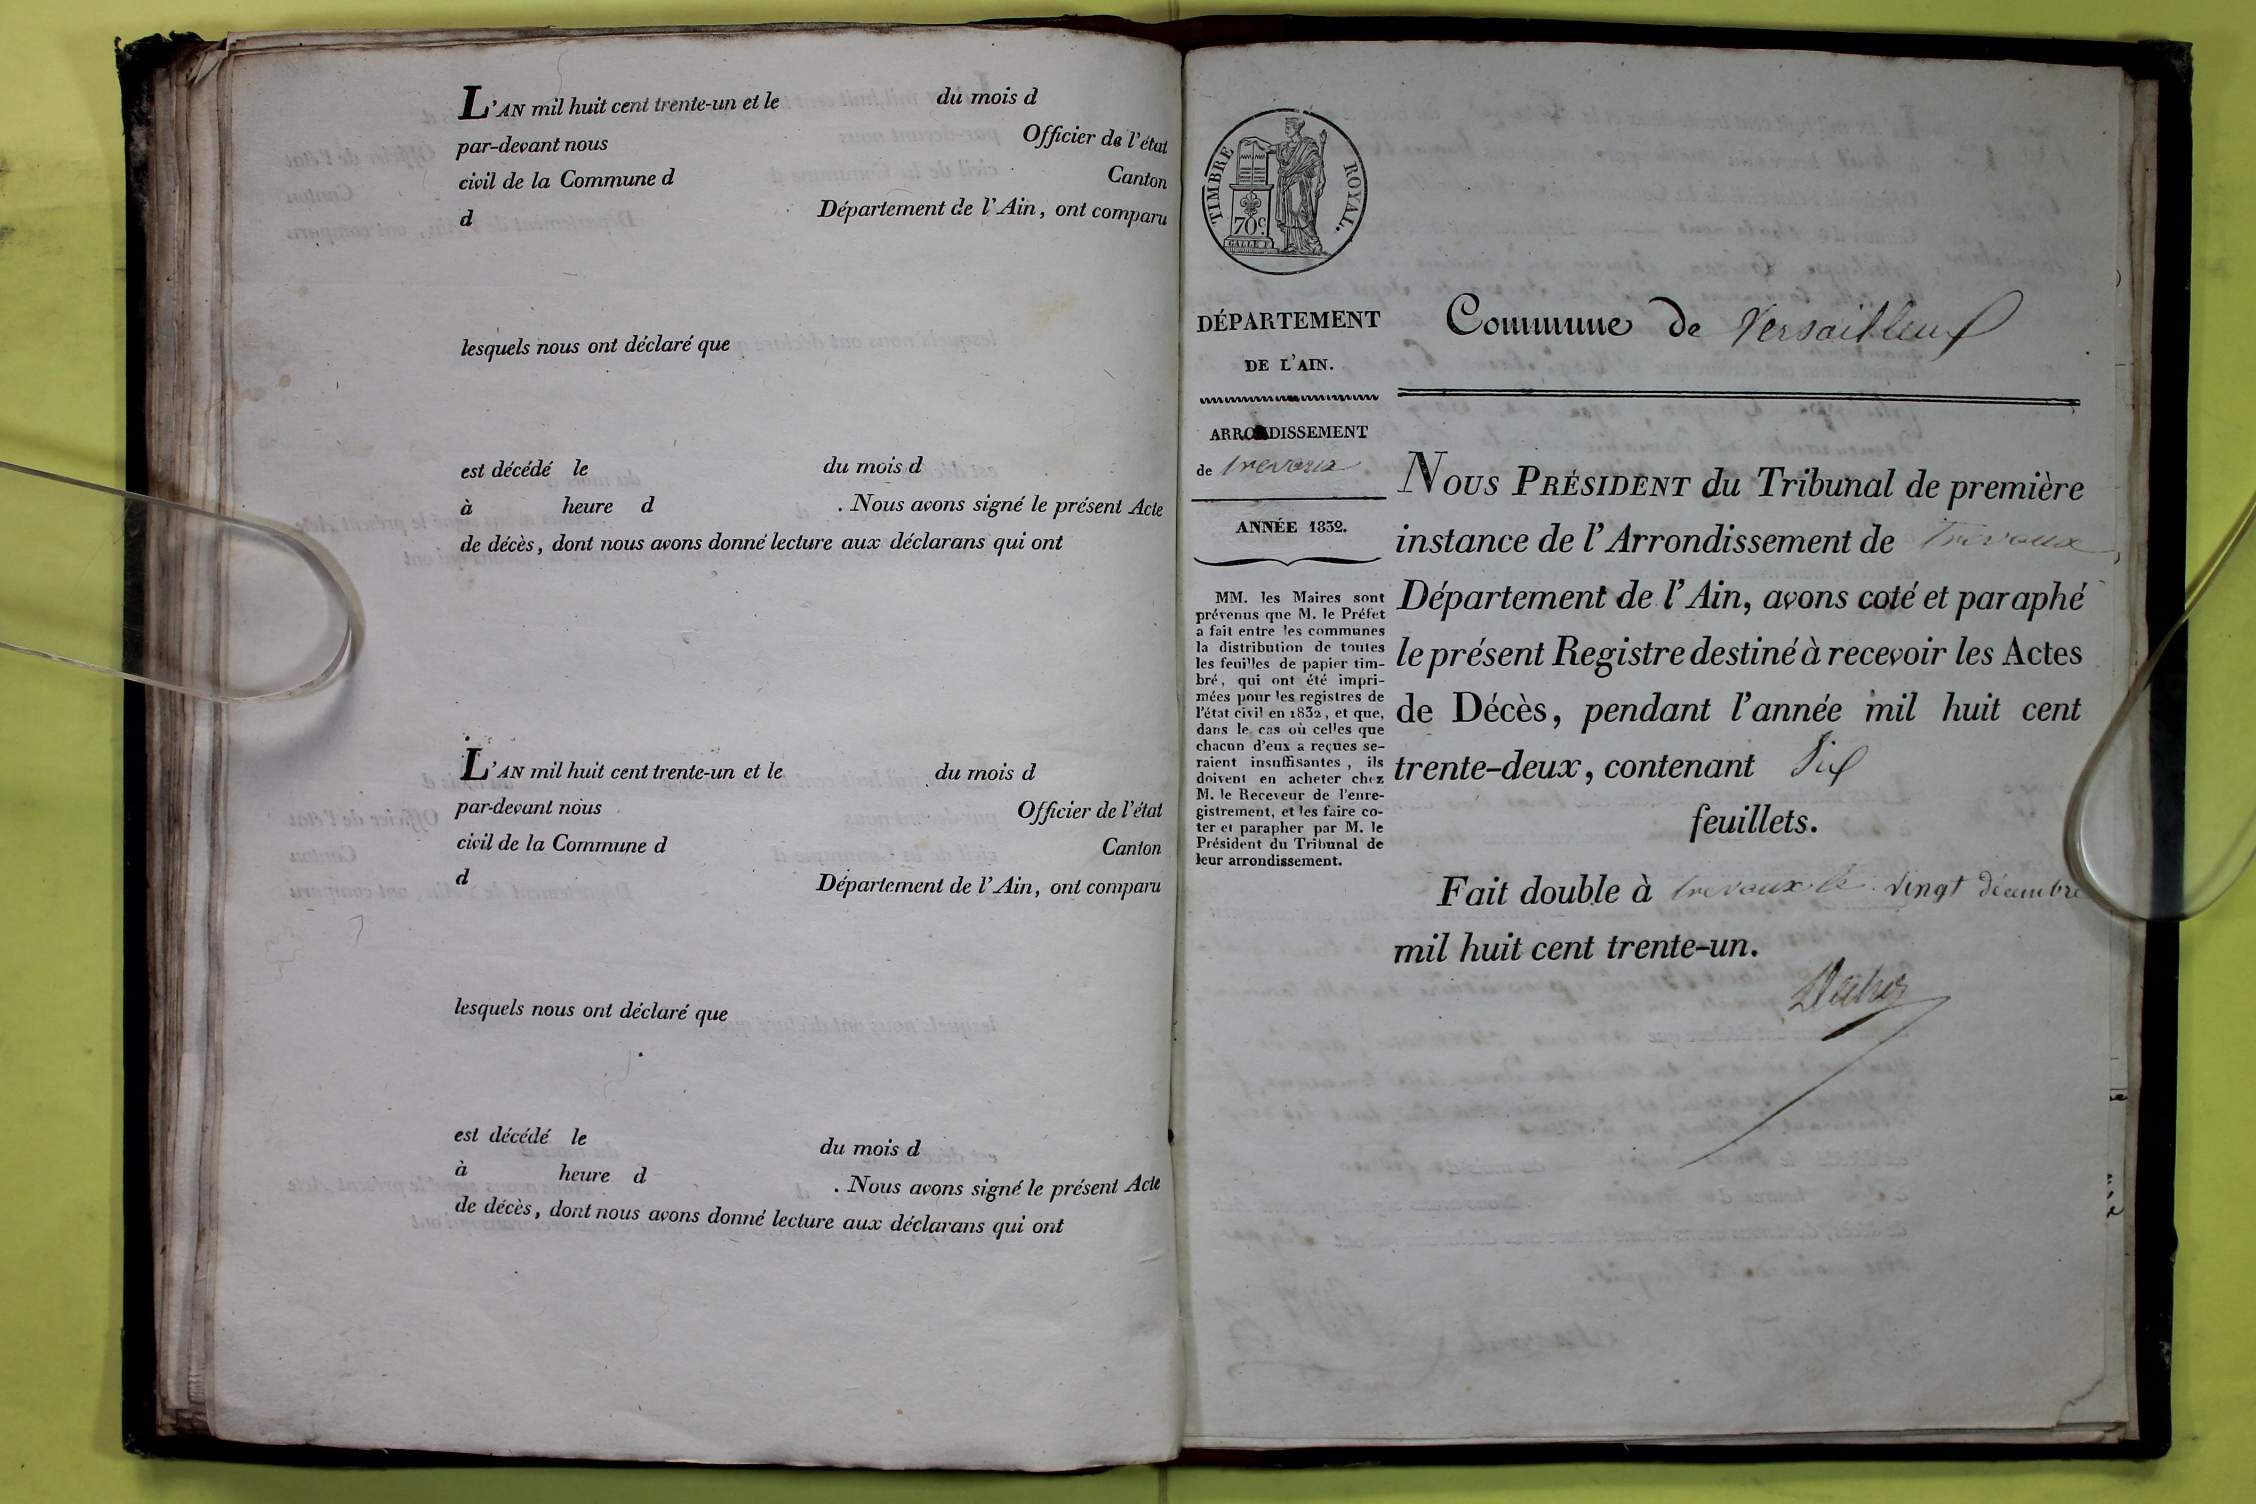 L'AN mil huit cent trente-un et le du mois d
par-devant nous Officier de l'état
civil de la Commune d Canton
d Département de l'Ain, ont comparu
lesquels nous ont déclaré que
est décédé le du mois d
à heure d . Nous avons signé le présent Acte
de décès, dont nous avons donné lecture aux déclarans qui ont
L'AN mil huit cent trente-un et le du mois d
par-devant nous Officier de l'état
civil de la Commune d Canton
d Département de l'Ain, ont comparu
lesquels nous ont déclaré que
est décédé le du mois d
à heure d . Nous avons signé le présent Acte
de décès, dont nous avons donné lecture aux déclarans qui ont
TIMBRE ROYAL.
70c.
DÉPARTEMENT
DE L'AIN.
ARRONDISSEMENT
de trevoux
ANNÉE 1832.
MM. les Maires sont
prévenus que M. le Préfet
a fait entre les communes
la distribution de toutes
les feuilles de papier tim-
bré, qui ont été impri-
mées pour les registres de
l'état civil en 1832, et que,
dans le cas où celles que
chacun d'eux a reçues se-
raient insuffisantes, ils
doivent en acheter chez
M. le Receveur de l'enre-
gistrement, et les faire co-
ter et parapher par M. le
Président du Tribunal de
leur arrondissement.
Commune de Versailleux
NOUS PRÉSIDENT du Tribunal de première
instance de l'Arrondissement de Trevoux
Département de l'Ain, avons coté et paraphé
le présent Registre destiné à recevoir les Actes
de Décès, pendant l'année mil huit cent
trente-deux, contenant Six
feuillets.
Fait double à trevoux le vingt décembre
mil huit cent trente-un.